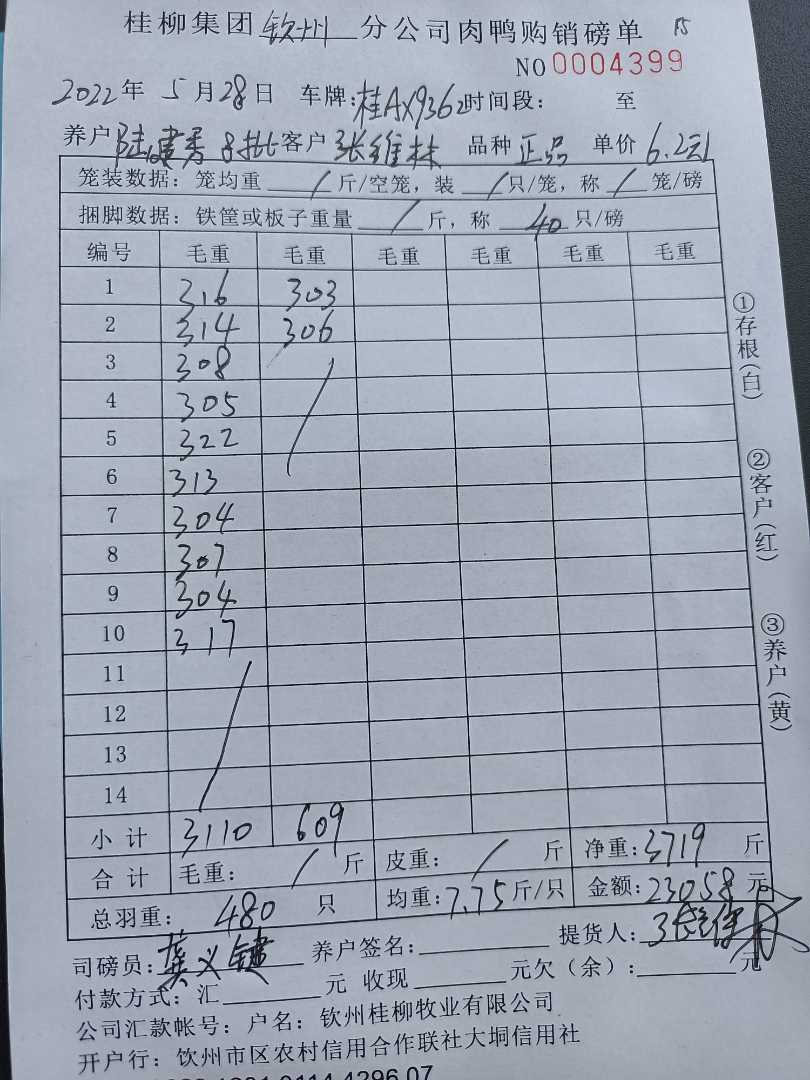 桂柳集团钦州分公司肉鸭购销磅单
NO 0004399
2022年 5月28日 车牌:桂AX9362时间段: 至
养户陆建秀 8批客户张维林 品种正品 单价6.2元
笼装数据:笼均重 / 斤/空笼,装 / 只/笼,称 / 笼/磅
捆脚数据:铁筐或板子重量 / 斤,称 40 只/磅
编号 毛重 毛重 毛重 毛重 毛重 毛重
1 316 303
2 314 306
3 308
4 305
5 322
6 313
7 304
8 307
9 304
10 317
11
12
13
14
小计 3110 609
合计 毛重: / 斤 皮重: / 斤 净重:3719 斤
总羽重: 480 只 均重:7.75斤/只 金额:23058元
司磅员:龚义键 养户签名: 提货人:张维林
付款方式:汇 元 收现 元欠(余): 元
公司汇款帐号:户名:钦州桂柳牧业有限公司
开户行:钦州市区农村信用合作联社大垌信用社
①存根(白)
②客户(红)
③养户(黄)